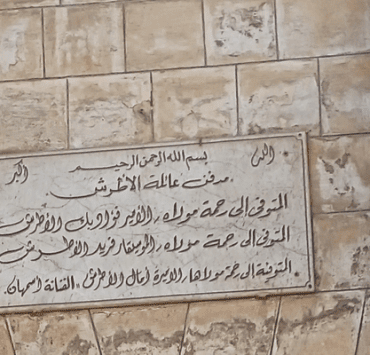 بسم الله الرحمن الرحيم
مدفن عائلة الاطرش
المتوفى الى رحمة مولاه الأمير فؤاد بك الأطرش
المتوفى الى رحمة مولاه الموسيقار فريد الأطرش
المتوفية الى رحمة مولاها الاميرة أمال الاطرش "الفنانة اسمهان"